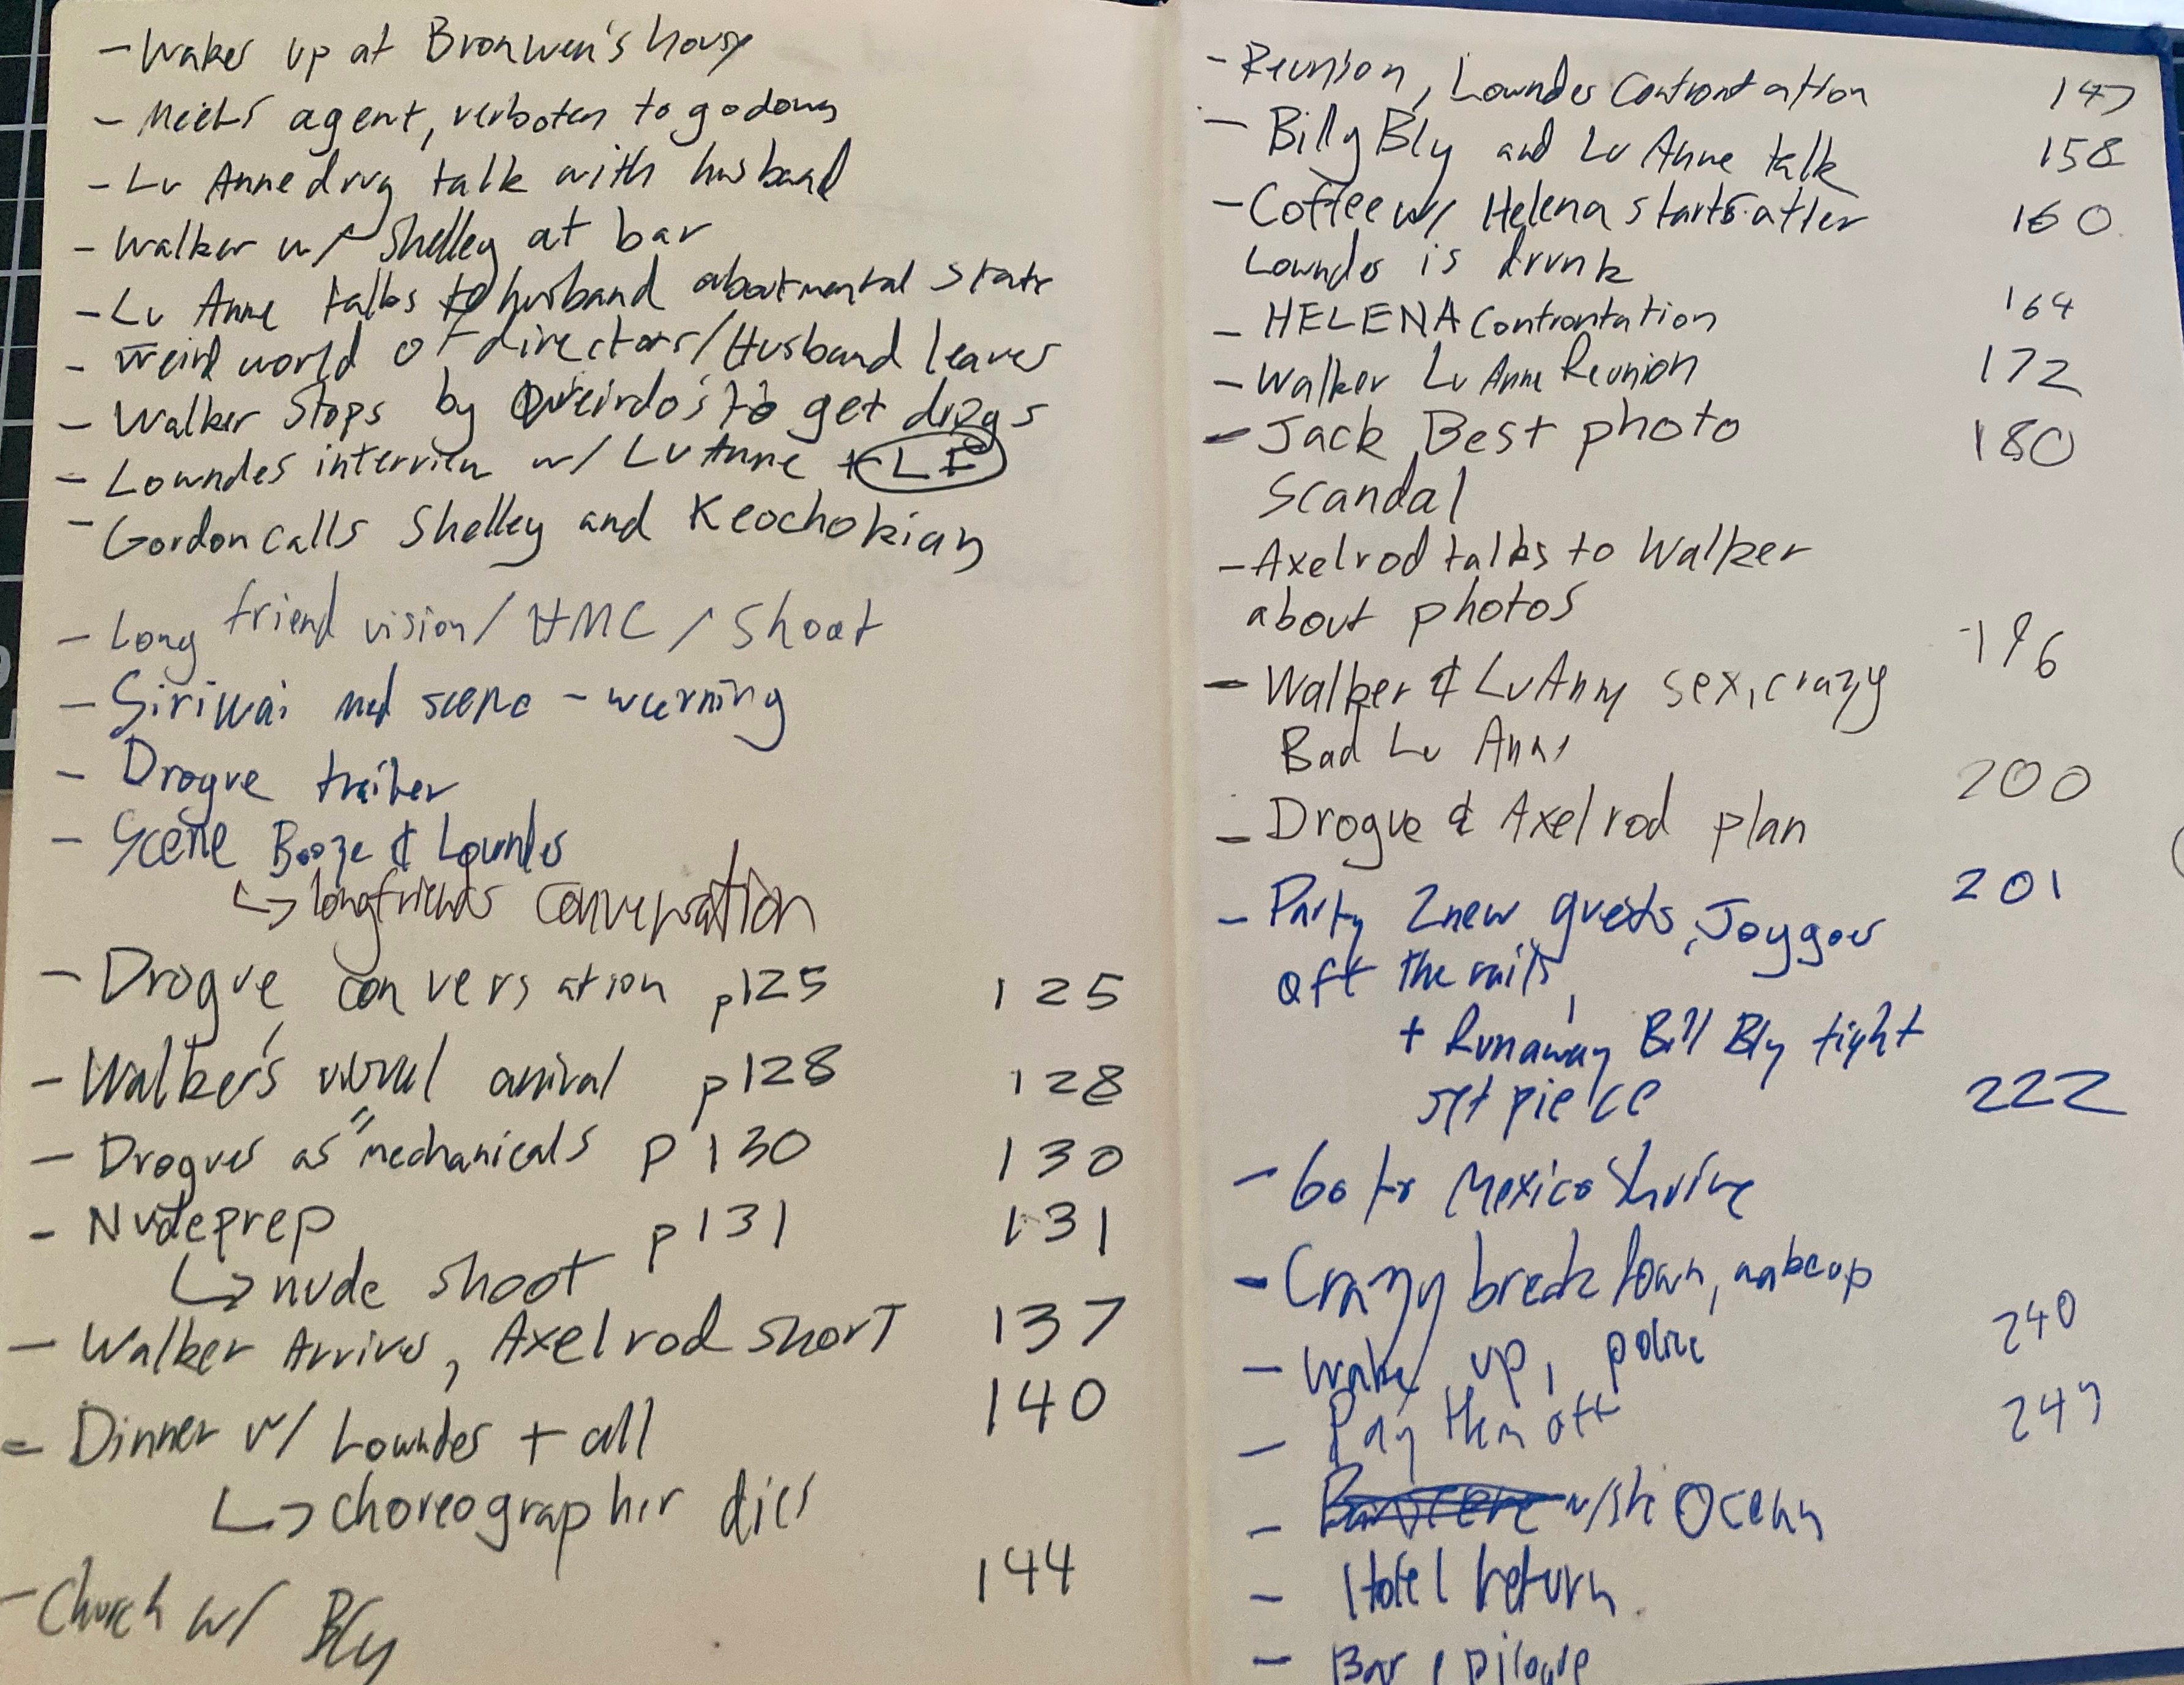 - Wakes up at Bronwen's house
- Meets agent, verboten to go down
- Lu Anne drug talk with husband
- Walker w/ Shelley at bar
- Lu Anne talks to husband about mental state
- Weird world of directors/Husband leaves
- Walker stops by Qweirdo's to get drugs
- Lowndes interview w/ Lu Anne + LF
- Gordon calls Shelley and Keochokian
- Long friend vision / HMC / Shoot
- Siriwai med scene - warning
- Drogue trailer
- Scene Booze & Lowndes
↳ longfriends conversation
- Drogue conversation p125 125
- Walker's arrival p128 128
- Drogues as "mechanicals p130 130
- Nudeprep p131 131
↳ nude shoot
- Walker Arrives, Axelrod short 137
- Dinner w/ Lowndes + all 140
↳ choreographer dies
- Church w/ Bly 144
- Reunion, Lowndes Confrontation 147
- Billy Bly and Lu Anne talk 158
- Coffee w/ Helena starts after 160
Lowndes is drunk
- HELENA Confrontation 164
- Walker Lu Anne Reunion 172
- Jack Best photo 180
Scandal
- Axelrod talks to Walker
about photos
- Walker & Lu Anne sex, crazy 196
Bad Lu Anne
- Drogue & Axelrod plan 200
- Party 2 new guests, Joy goes 201
off the rails,
+ Runaway Bill Bly fight
set piece 222
- Go to Mexico Shrine
- Crazy breakdown, makeup
- Wake up, police 240
- Pay them off 247
- w/ Ocean
- Hotel return
- Bar epilogue